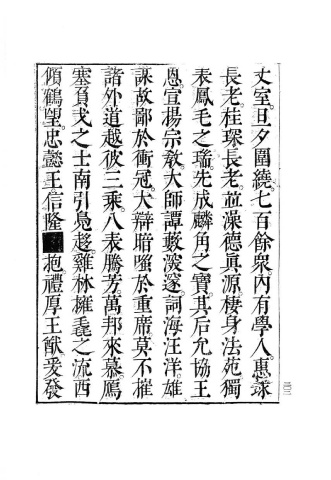 丈室。旦夕圍繞。七百餘衆。內有學人。惠球
長老。桂琛長老。並澡德眞源。棲身法苑。獨
表鳳毛之瑞。先成麟角之寶。其后允協王
恩。宣揚宗教。大師譚藪㴱邃。詞海汪洋。雄
謀故鄙於衝冠。大辯暗嗤於重席。莫不摧
諸外道。越彼三乘。八表騰芳。萬邦來慕。鴈
塞負戈之士。南引鳧趍。雞林擁毳之流。西
傾鶴望。忠懿王信隆抱。禮厚王猷。爰發